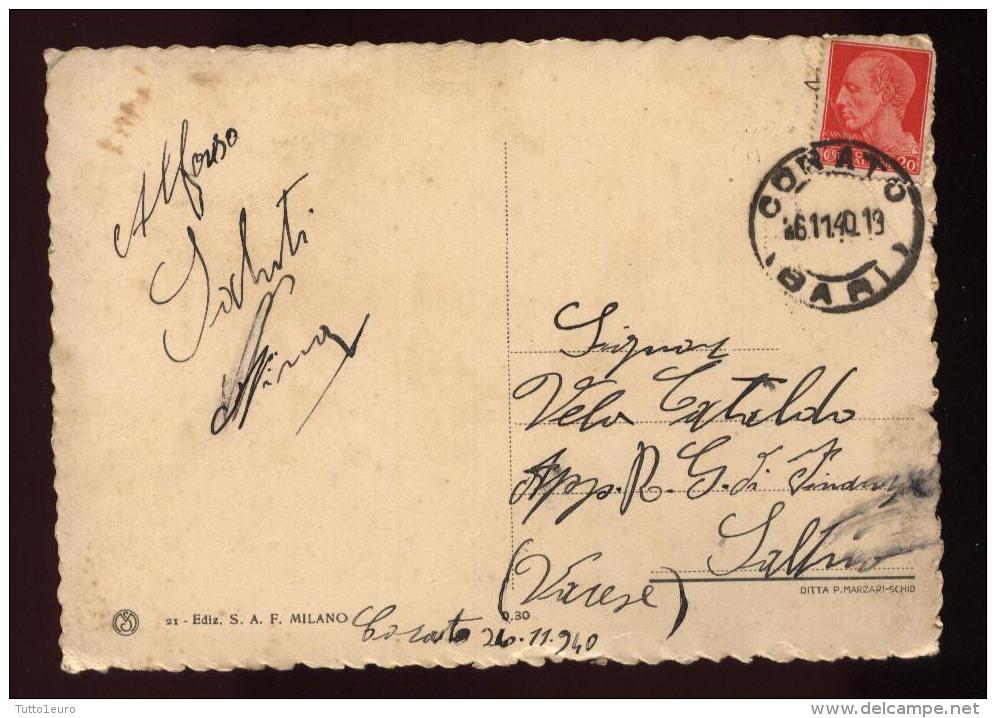 Alfonso
Saluti
Nina
20
CORATO
26.11.40.19
(BARI)
Signor
Vela Cataldo
App. R. G. di Finanza
Saltrio
(Varese)
DITTA P. MARZARI-SCHIO
21 - Ediz. S. A. F. MILANO
0.30
Corato 26.11.940
Tuttoleuro
www.delcampe.net